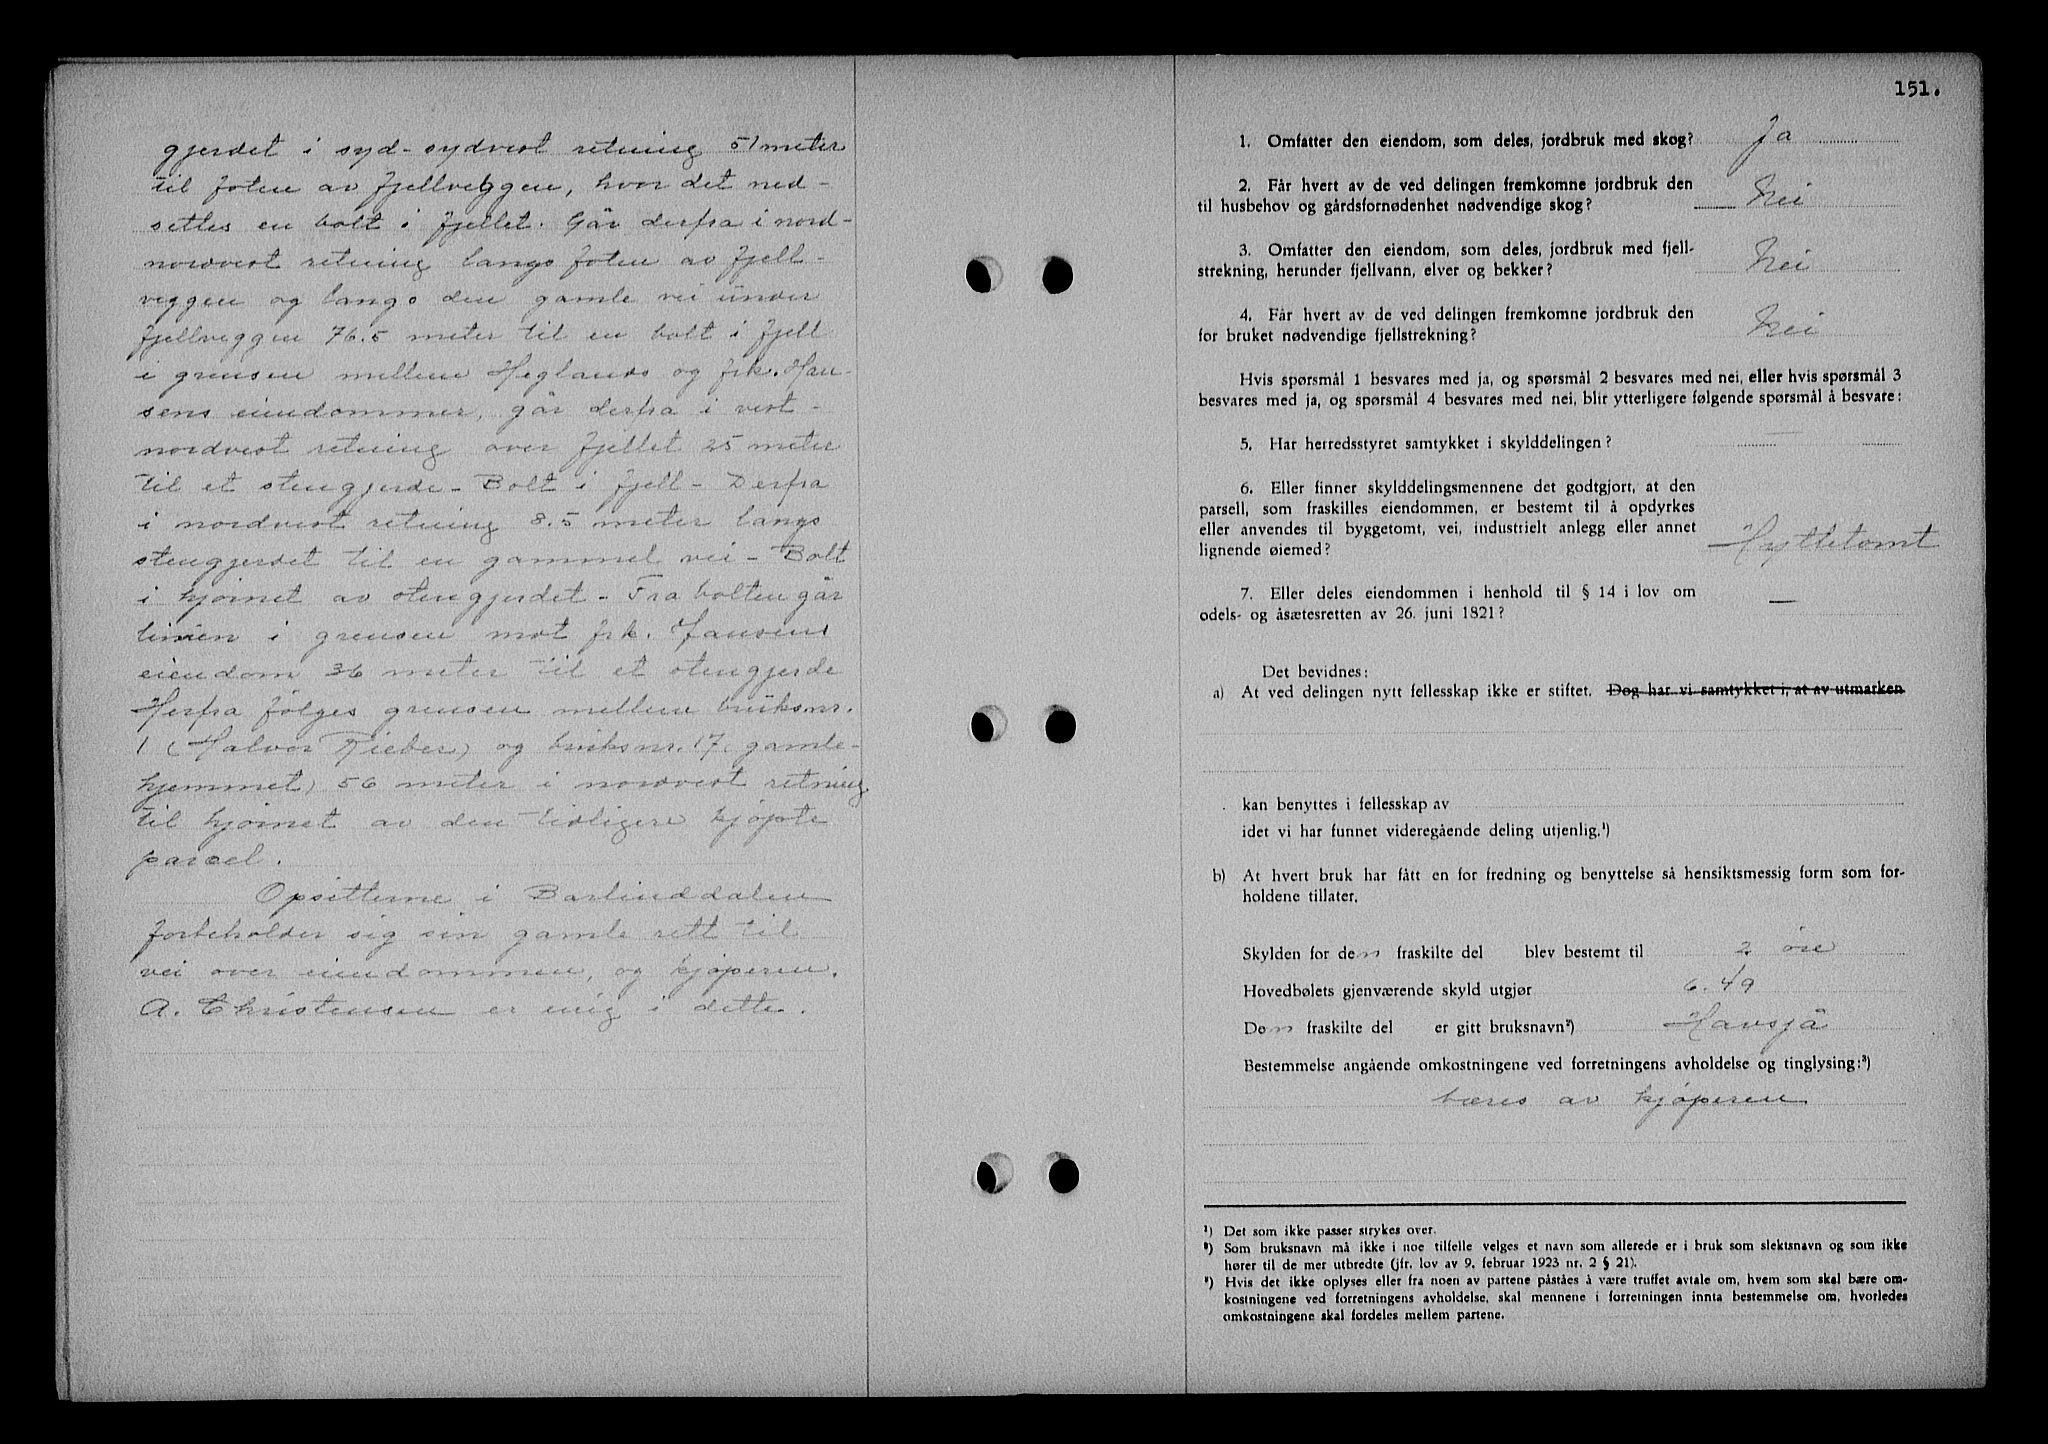 gjerdet i syd-sydvest retning 51 meter
til foten av fjellveggen, hvor det ned-
settes en bolt i fjellet. Går derfra i nord-
nordvest retning langs foten av fjell-
veggen og langs den gamle vei under
fjellveggen 76.5 meter til en bolt i fjell
i grensen mellem Heglands og frk. Han-
sens eiendommer, går derfra i vest-
nordvest retning over fjellet 25 meter
til et stengjerde - Bolt i fjell - Derfra
i nordvest retning 8.5 meter langs
stengjerdet til en gammel vei - Bolt
i hjørnet av stengjerdet - Fra bolten går
linien i grensen mot frk. Jansens
eiendom 36 meter til et stengjerde
Herfra følges grensen mellem bruksnr.
1 (Halvor Rieber) og bruksnr. 17, gamle-
hjemmet) 56 meter i nordvest retning
til hjørnet av den tidligere kjøpte
parsel.
Opsitterne i Barlinddalen
forbeholder sig sin gamle rett til
vei over eiendommen, og kjøperen,
A. Christensen er enig i dette.
151.
1. Omfatter den eiendom, som deles, jordbruk med skog? Ja
2. Får hvert av de ved delingen fremkomne jordbruk den
til husbehov og gårdsfornødenhet nødvendige skog? Nei
3. Omfatter den eiendom, som deles, jordbruk med fjell-
strekning, herunder fjellvann, elver og bekker? Nei
4. Får hvert av de ved delingen fremkomne jordbruk den
for bruket nødvendige fjellstrekning? Nei
Hvis spørsmål 1 besvares med ja, og spørsmål 2 besvares med nei, eller hvis spørsmål 3
besvares med ja, og spørsmål 4 besvares med nei, blir ytterligere følgende spørsmål å besvare:
5. Har herredsstyret samtykket i skylddelingen? —
6. Eller finner skylddelingsmennene det godtgjort, at den
parsell, som fraskilles eiendommen, er bestemt til å opdyrkes
eller anvendes til byggetomt, vei, industrielt anlegg eller annet
lignende øiemed? Hyttetomt
7. Eller deles eiendommen i henhold til § 14 i lov om
odels- og åsætesretten av 26. juni 1821? —
Det bevidnes:
a) At ved delingen nytt fellesskap ikke er stiftet. Dog har vi samtykket i, at av utmarken
kan benyttes i fellesskap av
idet vi har funnet videregående deling utjenlig.¹)
b) At hvert bruk har fått en for fredning og benyttelse så hensiktsmessig form som for-
holdene tillater.
Skylden for den fraskilte del blev bestemt til 2 øre
Hovedbølets gjenværende skyld utgjør 6.49
Den fraskilte del er gitt bruksnavn²) Havsjå
Bestemmelse angående omkostningene ved forretningens avholdelse og tinglysing:³)
bæres av kjøperen
¹) Det som ikke passer strykes over.
²) Som bruksnavn må ikke i noe tilfelle velges et navn som allerede er i bruk som slektsnavn og som ikke
hører til de mer utbredte (jfr. lov av 9. februar 1923 nr. 2 § 21).
³) Hvis det ikke oplyses eller fra noen av partene påståes å være truffet avtale om, hvem som skal bære om-
kostningene ved forretningens avholdelse, skal mennene i forretningen innta bestemmelse om, hvorledes
omkostningene skal fordeles mellem partene.